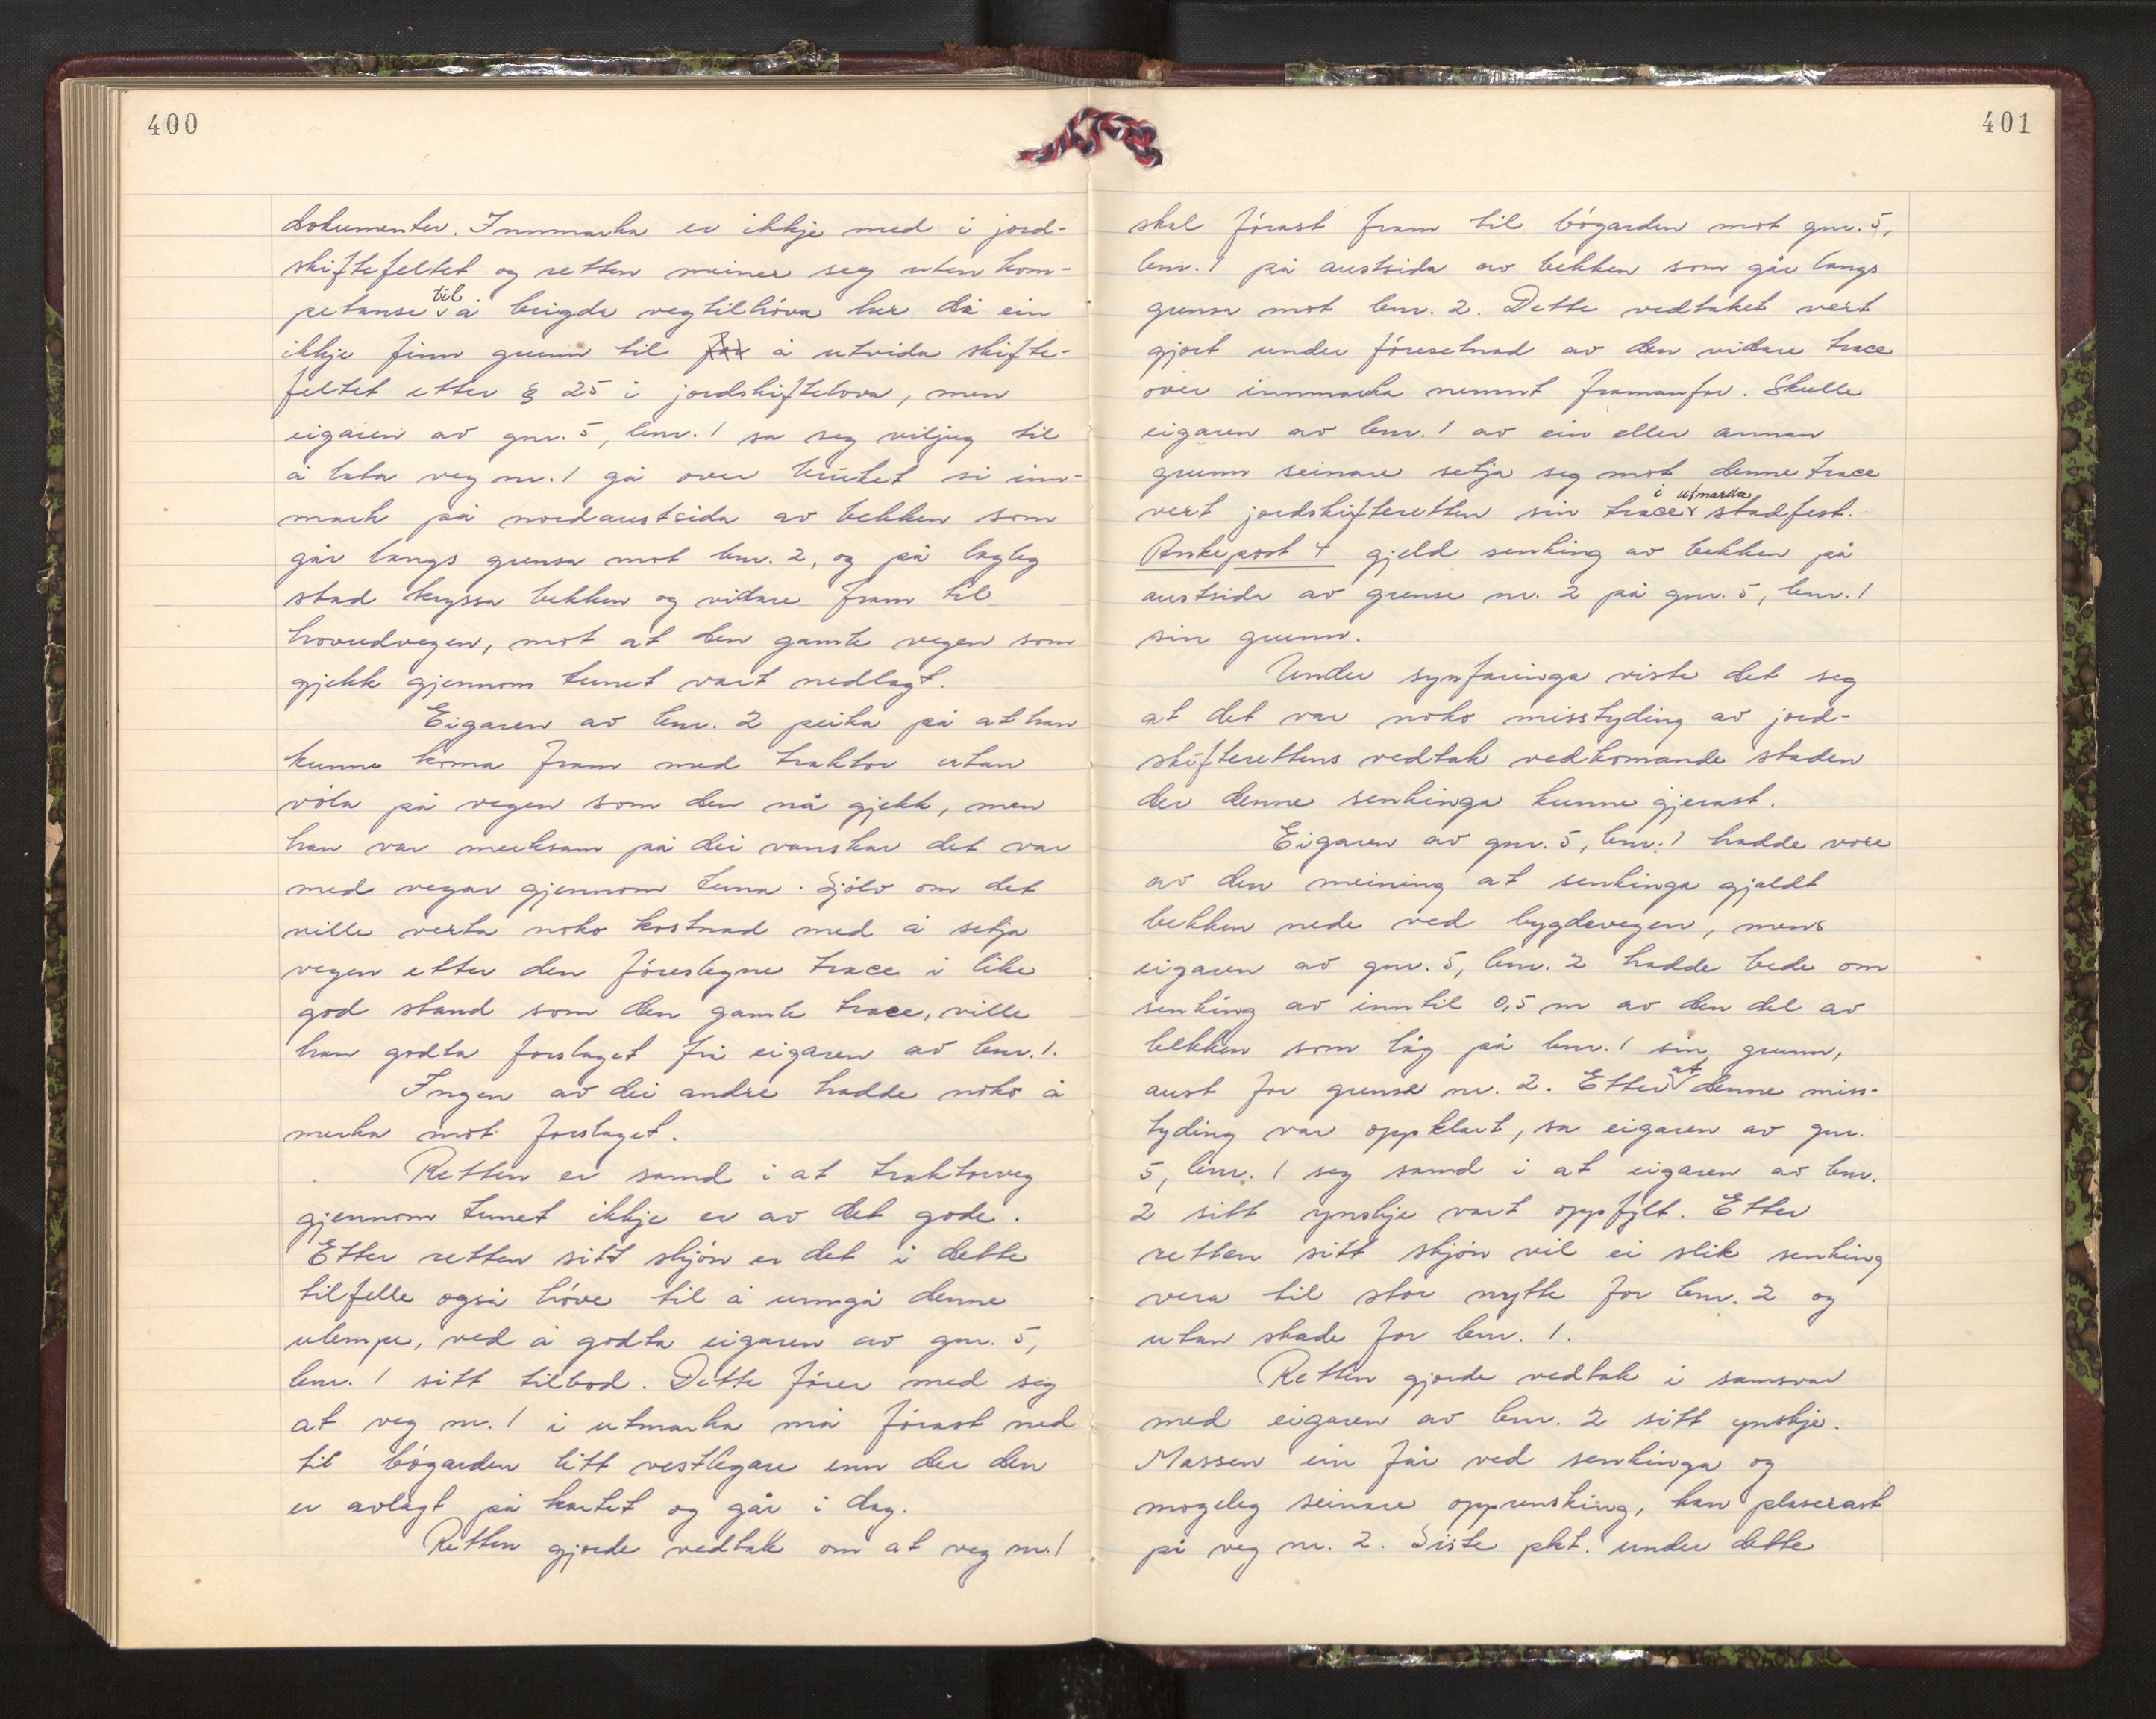 400
dokumenter. Innmarka er ikkje med i jord-
skiftefeltet og retten meiner seg uten kom-
petanse til å brigda vegtilhöva her då ein
ikkje finn grunn til for å utvida skifte-
feltet etter § 25 i jordskiftelova, men
eigaren av gnr. 5, bnr. 1 sa seg viljug til
å lata veg nr. 1 gå over bruket si inn-
mark på nordaustsida av bekken som
går langs grensa mot bnr. 2, og på lagleg
stad kryssa bekken og vidare fram til
hovudvegen, mot at den gamle vegen som
gjekk gjennom tunet vart nedlagt.
Eigaren av bnr. 2 peika på at han
kunne koma fram med traktor utan
völa på vegen som den nå gjekk, men
han var merksam på dei vanskar det var
med vegar gjennom tuna. Sjölv om det
ville verta noko kostnad med å setja
vegen etter den föreslegne trace i like
god stand som den gamle trace, ville
han godta forslaget frå eigaren av bnr. 1.
Ingen av dei andre hadde noko å
merka mot forslaget.
Retten er samd i at traktorveg
gjennom tunet ikkje er av det gode.
Etter retten sitt skjön er det i dette
tilfelle også höve til å unngå denne
ulempe, ved å godta eigaren av gnr. 5,
bnr. 1 sitt tilbod. Dette förer med seg
at veg nr. 1 i utmarka må förast ned
til bögarden litt vestlegare enn der den
er avlagt på kartet og går i dag.
Retten gjorde vedtak om at veg nr. 1
401
skal förast fram til bögarden mot gnr. 5,
bnr. 1 på austsida av bekken som går langs
grensa mot bnr. 2. Dette vedtaket vert
gjort under föresetnad av den vidare trace
over innmarka nemnt framanfor. Skulle
eigaren av bnr. 1 av ein eller annan
grunn seinare setja seg mot denne trace
vert jordskifteretten sin trace i utmarka stadfest.
Ankepost 4 gjeld senking av bekken på
austsida av grense nr. 2 på gnr. 5, bnr. 1
sin grunn.
Under synfaringa viste det seg
at det var noko misstyding av jord-
skifterettens vedtak vedkomande staden
der denne senkinga kunne gjerast.
Eigaren av gnr. 5, bnr. 1 hadde vore
av den meining at senkinga gjaldt
bekken nede ved bygdevegen, mens
eigaren av gnr. 5, bnr. 2 hadde bede om
senking av inntil 0,5 m av den del av
bekken som låg på bnr. 1 sin grunn,
aust for grense nr. 2. Etter at denne miss-
tyding var oppklart, sa eigaren av gnr.
5, bnr. 1 seg samd i at eigaren av bnr.
2 sitt ynskje vart oppfylt. Etter
retten sitt skjön vil ei slik senking
vera til stor nytte for bnr. 2 og
utan skade for bnr. 1.
Retten gjorde vedtak i samsvar
med eigaren av bnr. 2 sitt ynskje.
Massen ein får ved senkinga og
mogeleg seinare opprensking, kan plaserast
på veg nr. 2. Siste pkt. under dette